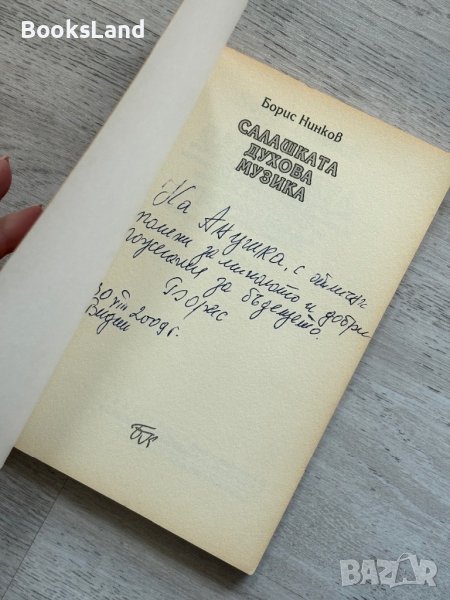 BooksLand
Борис Нинков
САЛАШКАТА
ДУХОВА
МУЗИКА
На Анушка, с
за миналото и добри
пожелания за бъдещето.
Борис
30 VIII 2009 г.
Видин
БК
BAZAR.bg